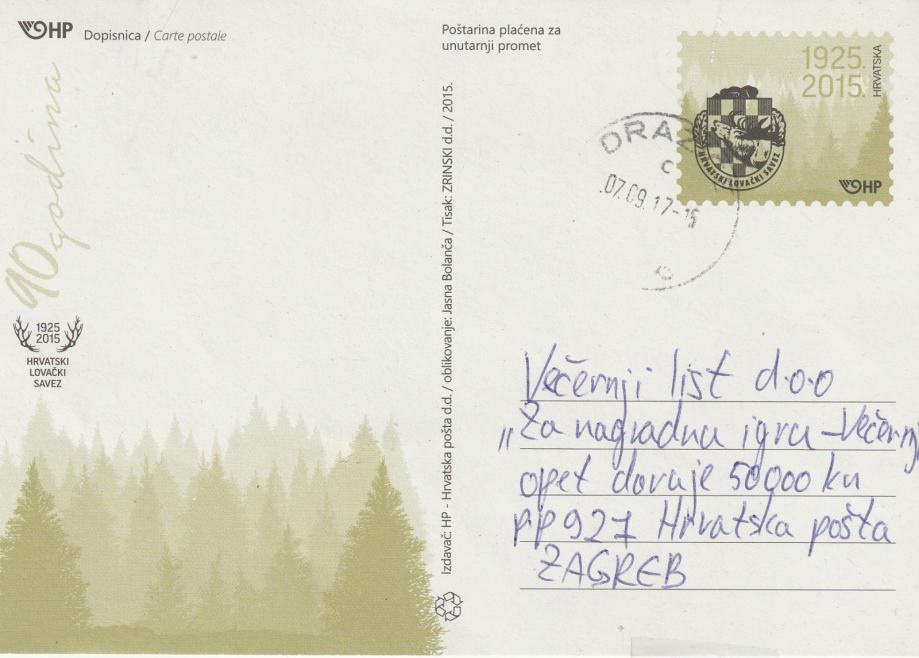 HP Dopisnica / Carte postale
Poštarina plaćena za
unutarnji promet
1925.
2015.
HRVATSKA
HRVATSKI LOVAČKI SAVEZ
HP
07.09.17-15
90 godina
1925
2015
HRVATSKI
LOVAČKI
SAVEZ
Izdavač: HP - Hrvatska pošta d.d. / oblikovanje: Jasna Bolanča / Tisak: ZRINSKI d.d. / 2015.
Večernji list d.o.o
„Za nagradnu igru - Večernj
opet daruje 50000 kn
pp 927 Hrvatska pošta
ZAGREB